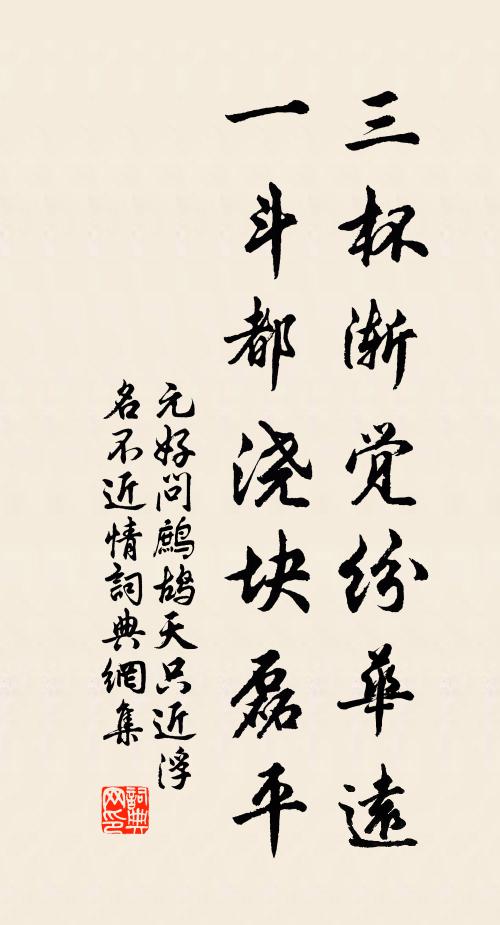 三杯渐觉纷华远
一斗都浇块磊平
元好问鹧鸪天只近浮
名不近情詞典網集
詞典
网印